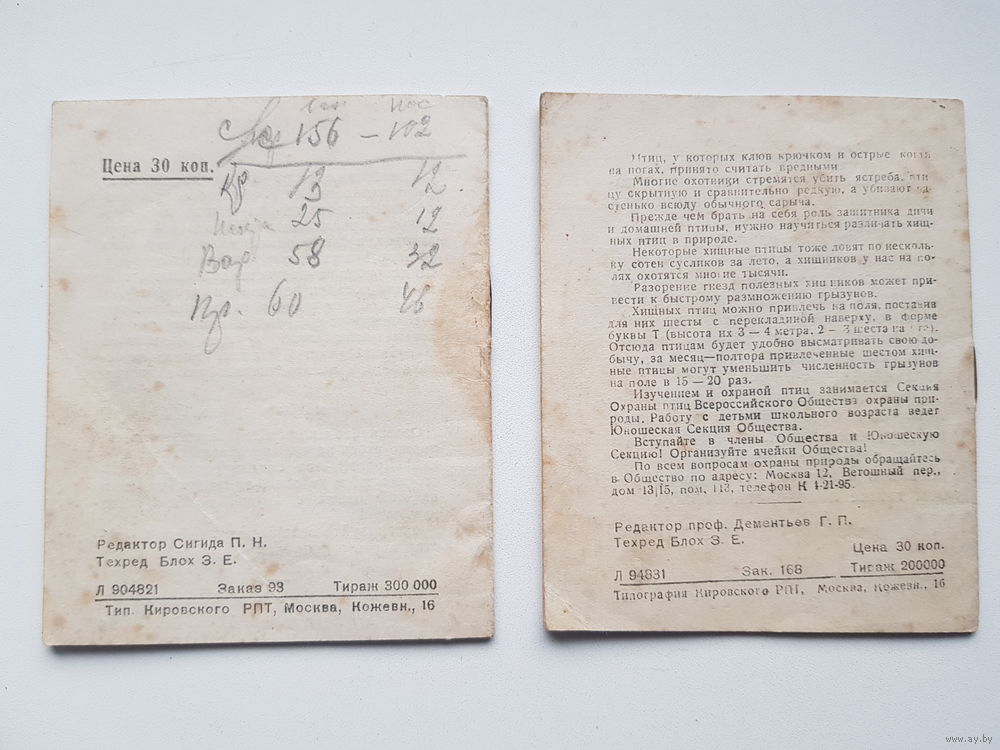 156 – 102
Цена 30 коп.
Кр 13 12
25 12
Вар 58 32
Пр. 60 46
Редактор Сигида П. Н.
Техред Блох З. Е.
Л 904821 Заказ 93 Тираж 300 000
Тип. Кировского РПТ, Москва, Кожевн., 16
Птиц, у которых клюв крючком и острые когти
на ногах, принято считать вредными
Многие охотники стремятся убить ястреба, пти
цу скрытную и сравнительно редкую, а убивают ча-
стенько всюду обычного сарыча.
Прежде чем брать на себя роль защитника дичи
и домашней птицы, нужно научиться различать хищ-
ных птиц в природе.
Некоторые хищные птицы тоже ловят по несколь-
ку сотен сусликов за лето, а хищников у нас на по-
лях охотятся многие тысячи.
Разорение гнезд полезных хищников может при-
вести к быстрому размножению грызунов.
Хищных птиц можно привлечь на поля, поставив
для них шесты с перекладиной наверху, в форме
буквы Т (высота их 3 — 4 метра, 2 - 3 шеста на га).
Отсюда птицам будет удобно высматривать свою до-
бычу, за месяц—полтора привлеченные шестом хищ-
ные птицы могут уменьшить численность грызунов
на поле в 15 — 20 раз.
Изучением и охраной птиц занимается Секция
Охраны птиц Всероссийского Общества охраны при-
роды. Работу с детьми школьного возраста ведет
Юношеская Секция Общества.
Вступайте в члены Общества и Юношескую
Секцию! Организуйте ячейки Общества!
По всем вопросам охраны природы обращайтесь
в Общество по адресу: Москва 12, Ветошный пер.,
дом 13/15, пом. 113, телефон К 4-21-95.
Редактор проф. Дементьев Г. П.
Техред Блох З. Е.
Цена 30 коп.
Л 94831 Зак. 168 Тираж 200000
Типография Кировского РПТ, Москва, Кожевн., 16
www.ay.by